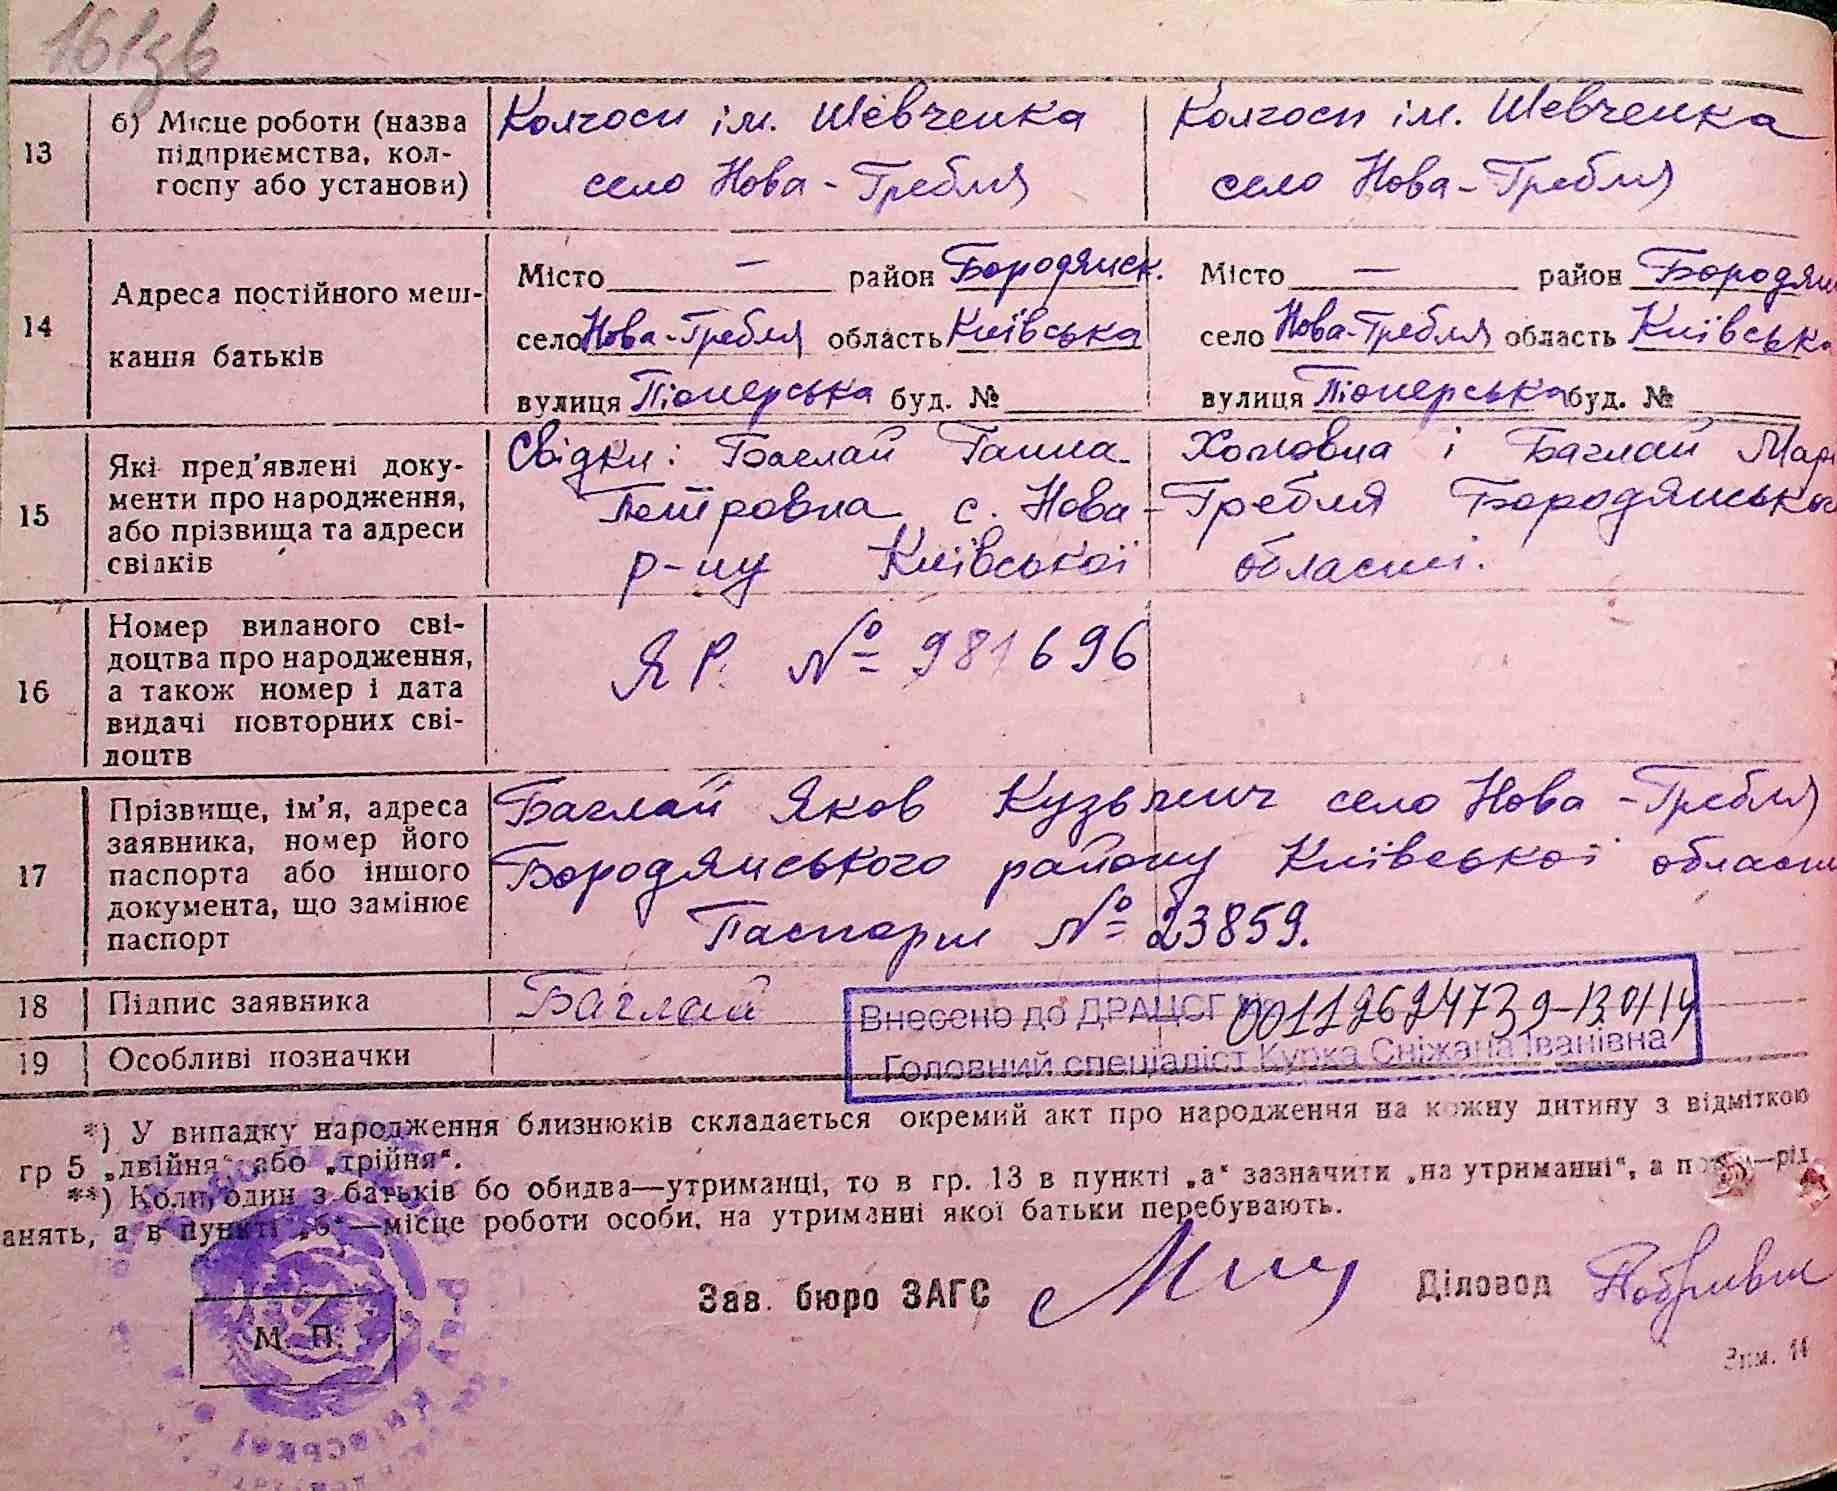 161зв
13
б) Місце роботи (назва
підприємства, кол-
госпу або установи)
Колгосп ім. Шевченка
село Нова-Гребля
Колгосп ім. Шевченка
село Нова-Гребля
14
Адреса постійного меш-
кання батьків
Місто — район Бородянск.
село Нова-Гребля область Київська
вулиця Піонерська буд. №
Місто — район Бородян
село Нова-Гребля область Київська
вулиця Піонерська буд. №
15
Які пред'явлені доку-
менти про народження,
або прізвища та адреси
свідків
Свідки: Баглай Ганна Хомовна і Баглай Марі
Петровна с. Нова-Гребля Бородянсько
р-ну Київської області.
16
Номер виданого сві-
доцтва про народження,
а також номер і дата
видачі повторних сві-
доцтв
ЯР. № 981696
17
Прізвище, ім'я, адреса
заявника, номер його
паспорта або іншого
документа, що замінює
паспорт
Баглай Яков Кузьмич село Нова-Гребля
Бородянського району Київської област
Паспорт № 23859.
18
Підпис заявника
Баглай
19
Особливі позначки
Внесено до ДРАЦСГ № 00112624739-13.01.14
Головний спеціаліст Курка Сніжана Іванівна
*) У випадку народження близнюків складається окремий акт про народження на кожну дитину з відміткою
гр 5 „двійня“ або „трійня“.
**) Коли один з батьків бо обидва—утриманці, то в гр. 13 в пункті „а“ зазначити „на утриманні“, а п —рід
анять, а в пункті „б“—місце роботи особи, на утриманні якої батьки перебувають.
М. П.
Зав. бюро ЗАГС
Діловод
Зам. 14